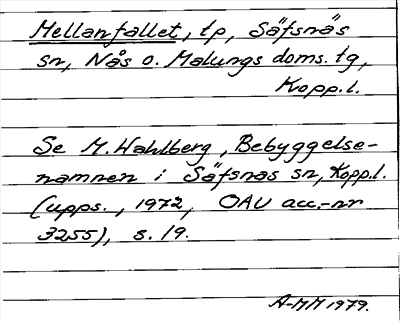 Mellanfallet, tp, Säfsnäs
sn, Nås o. Malungs doms. tg,
Kopp.l.
Se M. Wahlberg, Bebyggelse-
namnen i Säfsnäs sn, Kopp.l.
(upps., 1972, OAU acc.-nr
3255), s. 19.
A-MM 1979.